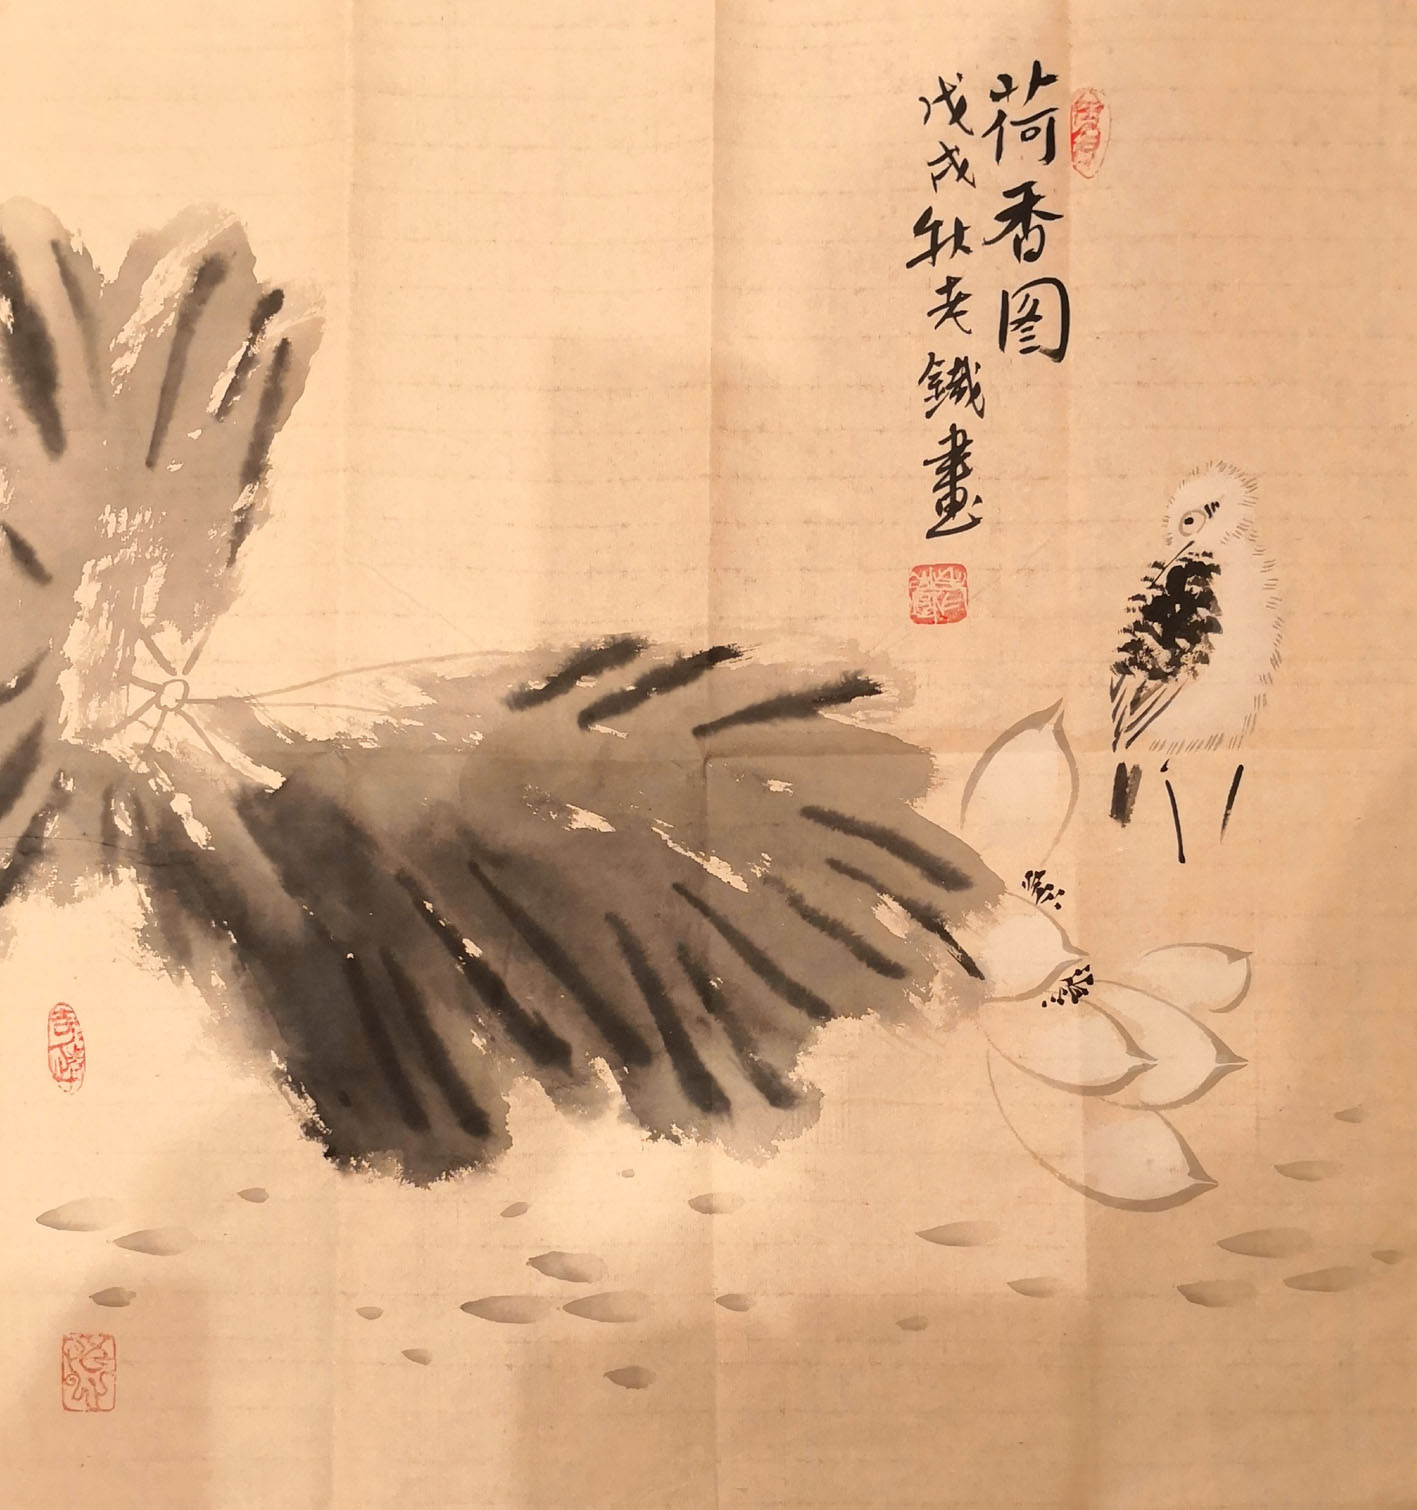 荷香图
戊戌秋老鐵畫